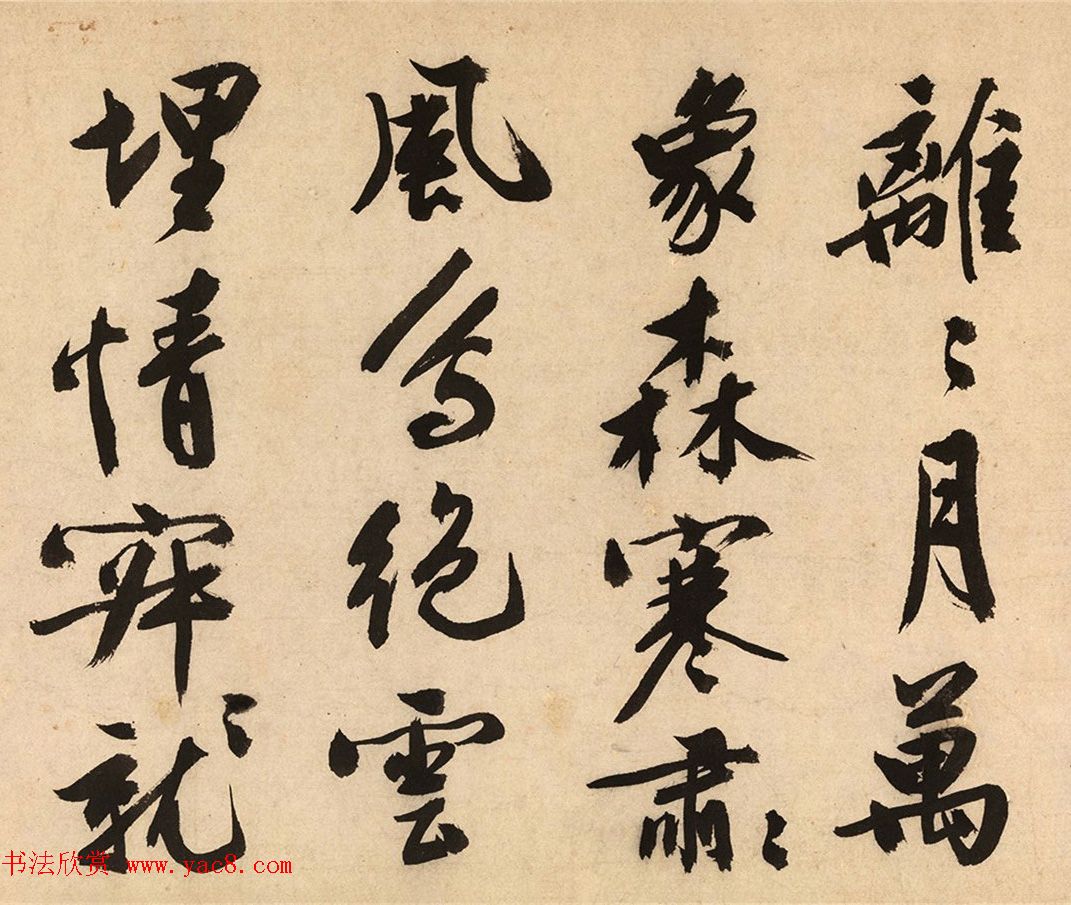 離〻月萬
象森寒肅〻
風鳥絕雲
埋情寂〻就
书法欣赏 www.yac8.com